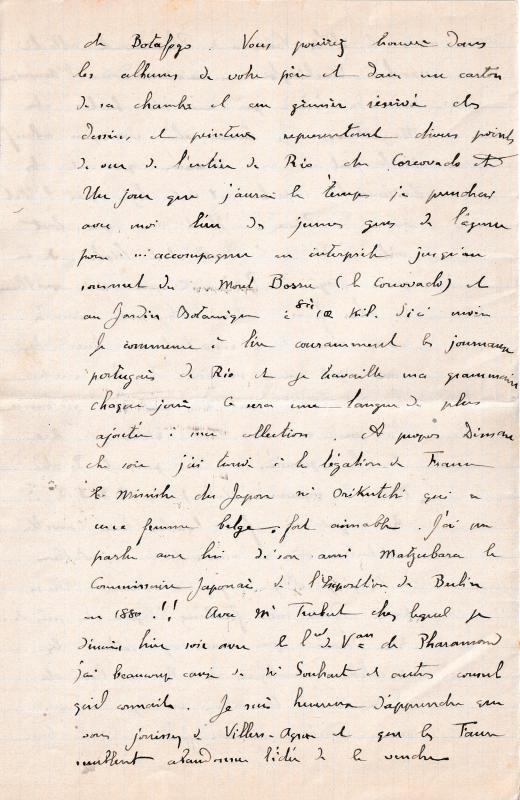 de Botafogo. Vous pourrez trouver dans
les albums de votre père et dans un carton
de sa chambre et au grenier réservé des
dessins et peintures représentant divers points
de vue de l'entrée de Rio du Corcovado etc
Un jour que j'aurai le temps je prendrai
avec moi l'un des jeunes gens de l'agence
pour m'accompagner en interprète jusqu'au
sommet du Mont Bossu (le Corcovado) et
au Jardin Botanique à 8 ou 10 Kil. d'ici environ
Je commence à lire couramment les journaux
portugais de Rio et je travaille ma grammaire
chaque jour. Ce sera une langue de plus
ajoutée à ma collection. A propos Dimanche
soir j'ai trouvé à la légation de France
le Ministre du Japon Mr Orikutchi qui a
une femme belge fort aimable. J'ai pu
parler avec lui de son ami Matzubara le
Commissaire Japonais de l'Exposition de Berlin
en 1880!! Avec Mr chez lequel je
dinais hier soir avec le de Pharamond
j'ai beaucoup causé de Mr Souhart et autres consul
qu'il connaît. Je suis heureux d'apprendre que
vous jouissez de Villers-Agron et que les
semblent abandonner l'idée de le vendre